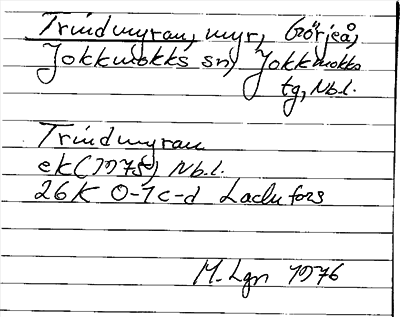 Trindmyran, myr, Görjeå,
Jokkmokks sn, Jokkmokks
tg, Nb.l.
Trindmyran
ek (1975) Nb.l.
26K 0-1 c-d
M. Lgn 1976